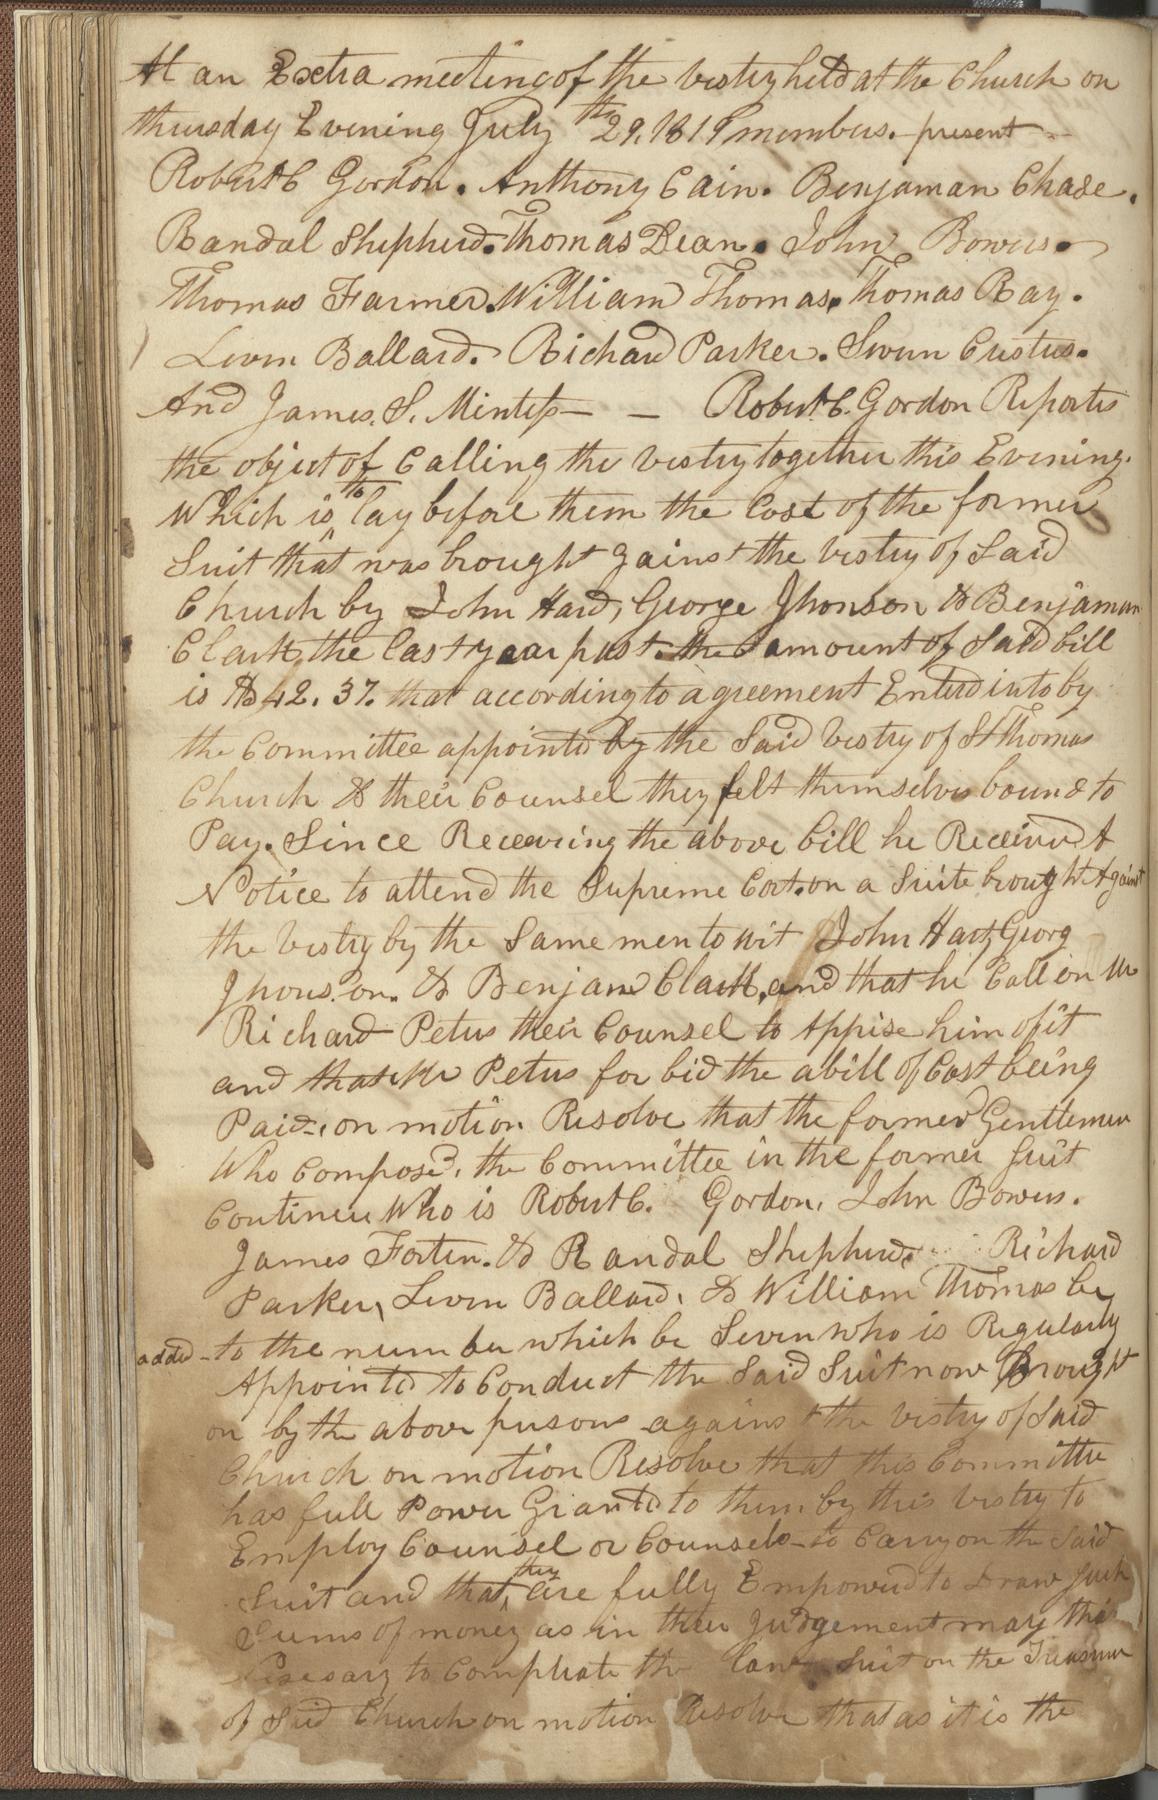 At an Extra meeting of the vestry held at the Church on
thursday Evening July 29th. 1819 members. present
Robert C Gordon. Anthony Cain. Benjaman Chase.
Randal Shepherd. Thomas Dean. John Bowers.
Thomas Farmer. William Thomas. Thomas Ray.
Leven Ballard. Richard Parker. Swun Custus.
And James. S. Mintess — — Robert C. Gordon Reports
the object of Calling the vestry together this Evening.
Which is to lay before them the Cost of the former
Suit that was brought gainst the vestry of Said
Church by John Hard, George Jhonson & Benjaman
Clark, the last year past. the amount of Said bill
is $42. 37. that according to agreement Enterd into by
the Committee appointed by the Said Vestry of St Thomas
Church & their Counsel they felt themselves bound to
Pay. Since Receeving the above bill he Receeved A
Notice to attend the Supreme Cort. on a Suite brought Against
the vestry by the Same men to wit John Hart, Georg
Jhonson. & Benjam Clark, and that he Call on Mr
Richard Petus their Counsel to Appise him of it
and that Mr Petus for bid the abill of Cost being
Paid, on motion Resolve that the former Gentlemen
Who Composed, the Committee in the former Suit
Continue Who is Robert C. Gordon, John Bowers.
James Forten. & Randal Shepherd. Richard
Parker, Leven Ballard, & William Thomas be
added - to the number which be Seven who is Regularly
Appointed to Conduct the Said Suit now Brought
on by the above persons against the vestry of Said
Church on motion Resolve that this Committee
has full Power Granted to them by this vestry to
Employ Counsel or Counsels to Carry on the Said
Suit and that they are fully Empowerd to Draw Such
Sums of money as in their Judgement may think
Nesesary to Compleate the law Suit on the Treasurer
of Said Church on motion Resolve that as it is the